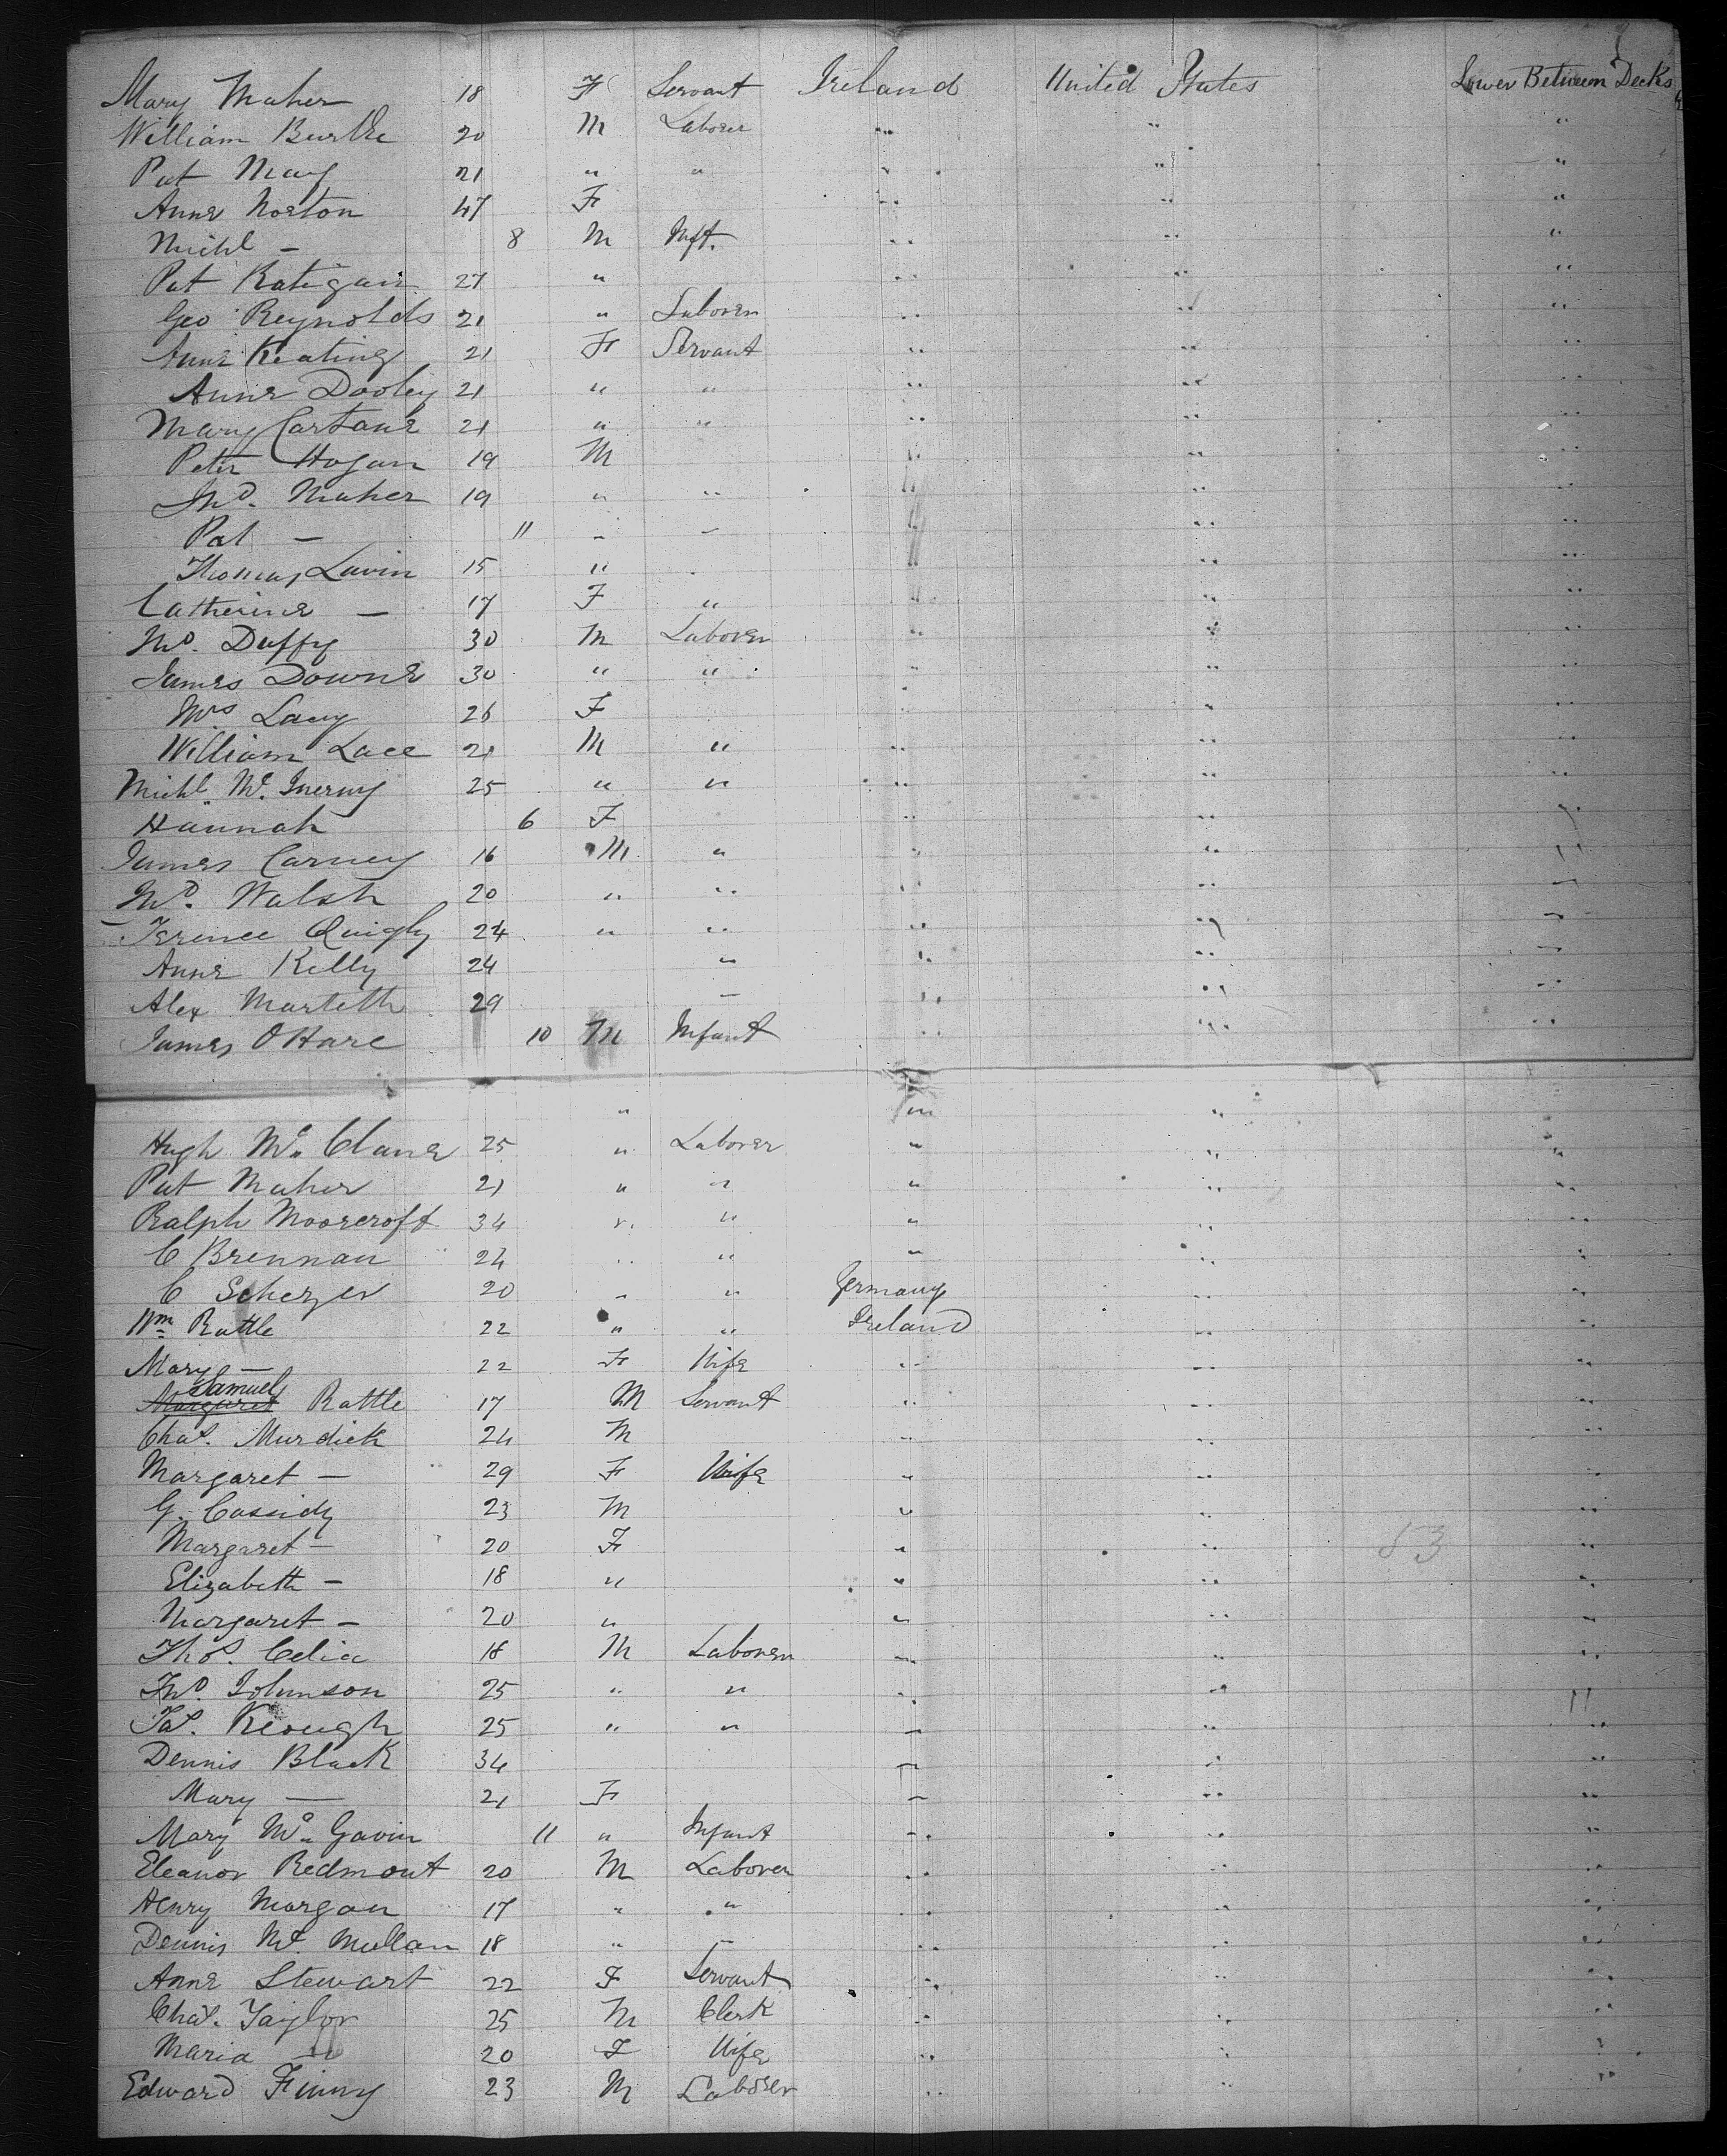 Mary Maher 18 F Servant Ireland United States Lower Between Decks
William Burke 20 M Laborer " " "
Pat May 21 " " " " "
Anne Norton 47 F " " "
Michl — 8 M Inft. " " "
Pat Ratigan 27 " " " "
Geo Reynolds 21 " Laborer " " "
Anne Keating 21 F Servant " " "
Anne Dooley 21 " " " " "
Mary Cartane 21 " " " " "
Peter Hogan 19 M " " "
Jno. Maher 19 " " " " "
Pat — 11 " " " " "
Thomas Lavin 15 " " " " "
Catherine — 17 F " " " "
Jno. Duffy 30 M Laborer " " "
James Downe 30 " " " " "
Mrs Lacy 26 F " " "
William Lace 21 M " " " "
Michl. Mc. Inerny 25 " " " " "
Hannah 6 F " " "
James Carney 16 M " " " "
Jno. Walsh 20 " " " " "
Terence Quigly 24 " " " " "
Anne Kelly 24 " " " "
Alex Marteth 29 " " " "
James O Hare 10 M Infant " " "
" " "
Hugh Mc. Clane 25 " Laborer " " "
Pat Maher 21 " " " " "
Ralph Moorcroft 34 " " " " "
C Brennan 24 " " " " "
C Scherzer 20 " " Germany " "
Wm Rattle 22 " " Ireland " "
Mary — 22 F Wife " " "
Samuel
Margaret Rattle 17 M Servant " " "
Chas. Murdick 24 M " " "
Margaret — 29 F Wife " " "
G. Cassidy 23 M " " "
Margaret — 20 F " " 53 "
Elizabeth — 18 " " " "
Margaret — 20 " " " "
Thos. Celia 18 M Laborer " " "
Jno. Johnson 25 " " " " "
Jas. Keough 25 " " " " "
Dennis Black 34 " " "
Mary — 21 F " " "
Mary Mc. Gavin 11 " Infant " " "
Eleanor Redmont 20 M Laborer " " "
Henry Morgan 17 " " " " "
Dennis Mc. Mullan 18 " " " " "
Anne Stewart 22 F Servant " " "
Chas. Taylor 25 M Clerk " " "
Maria — 20 F Wife " " "
Edward Finny 23 M Laborer " " "